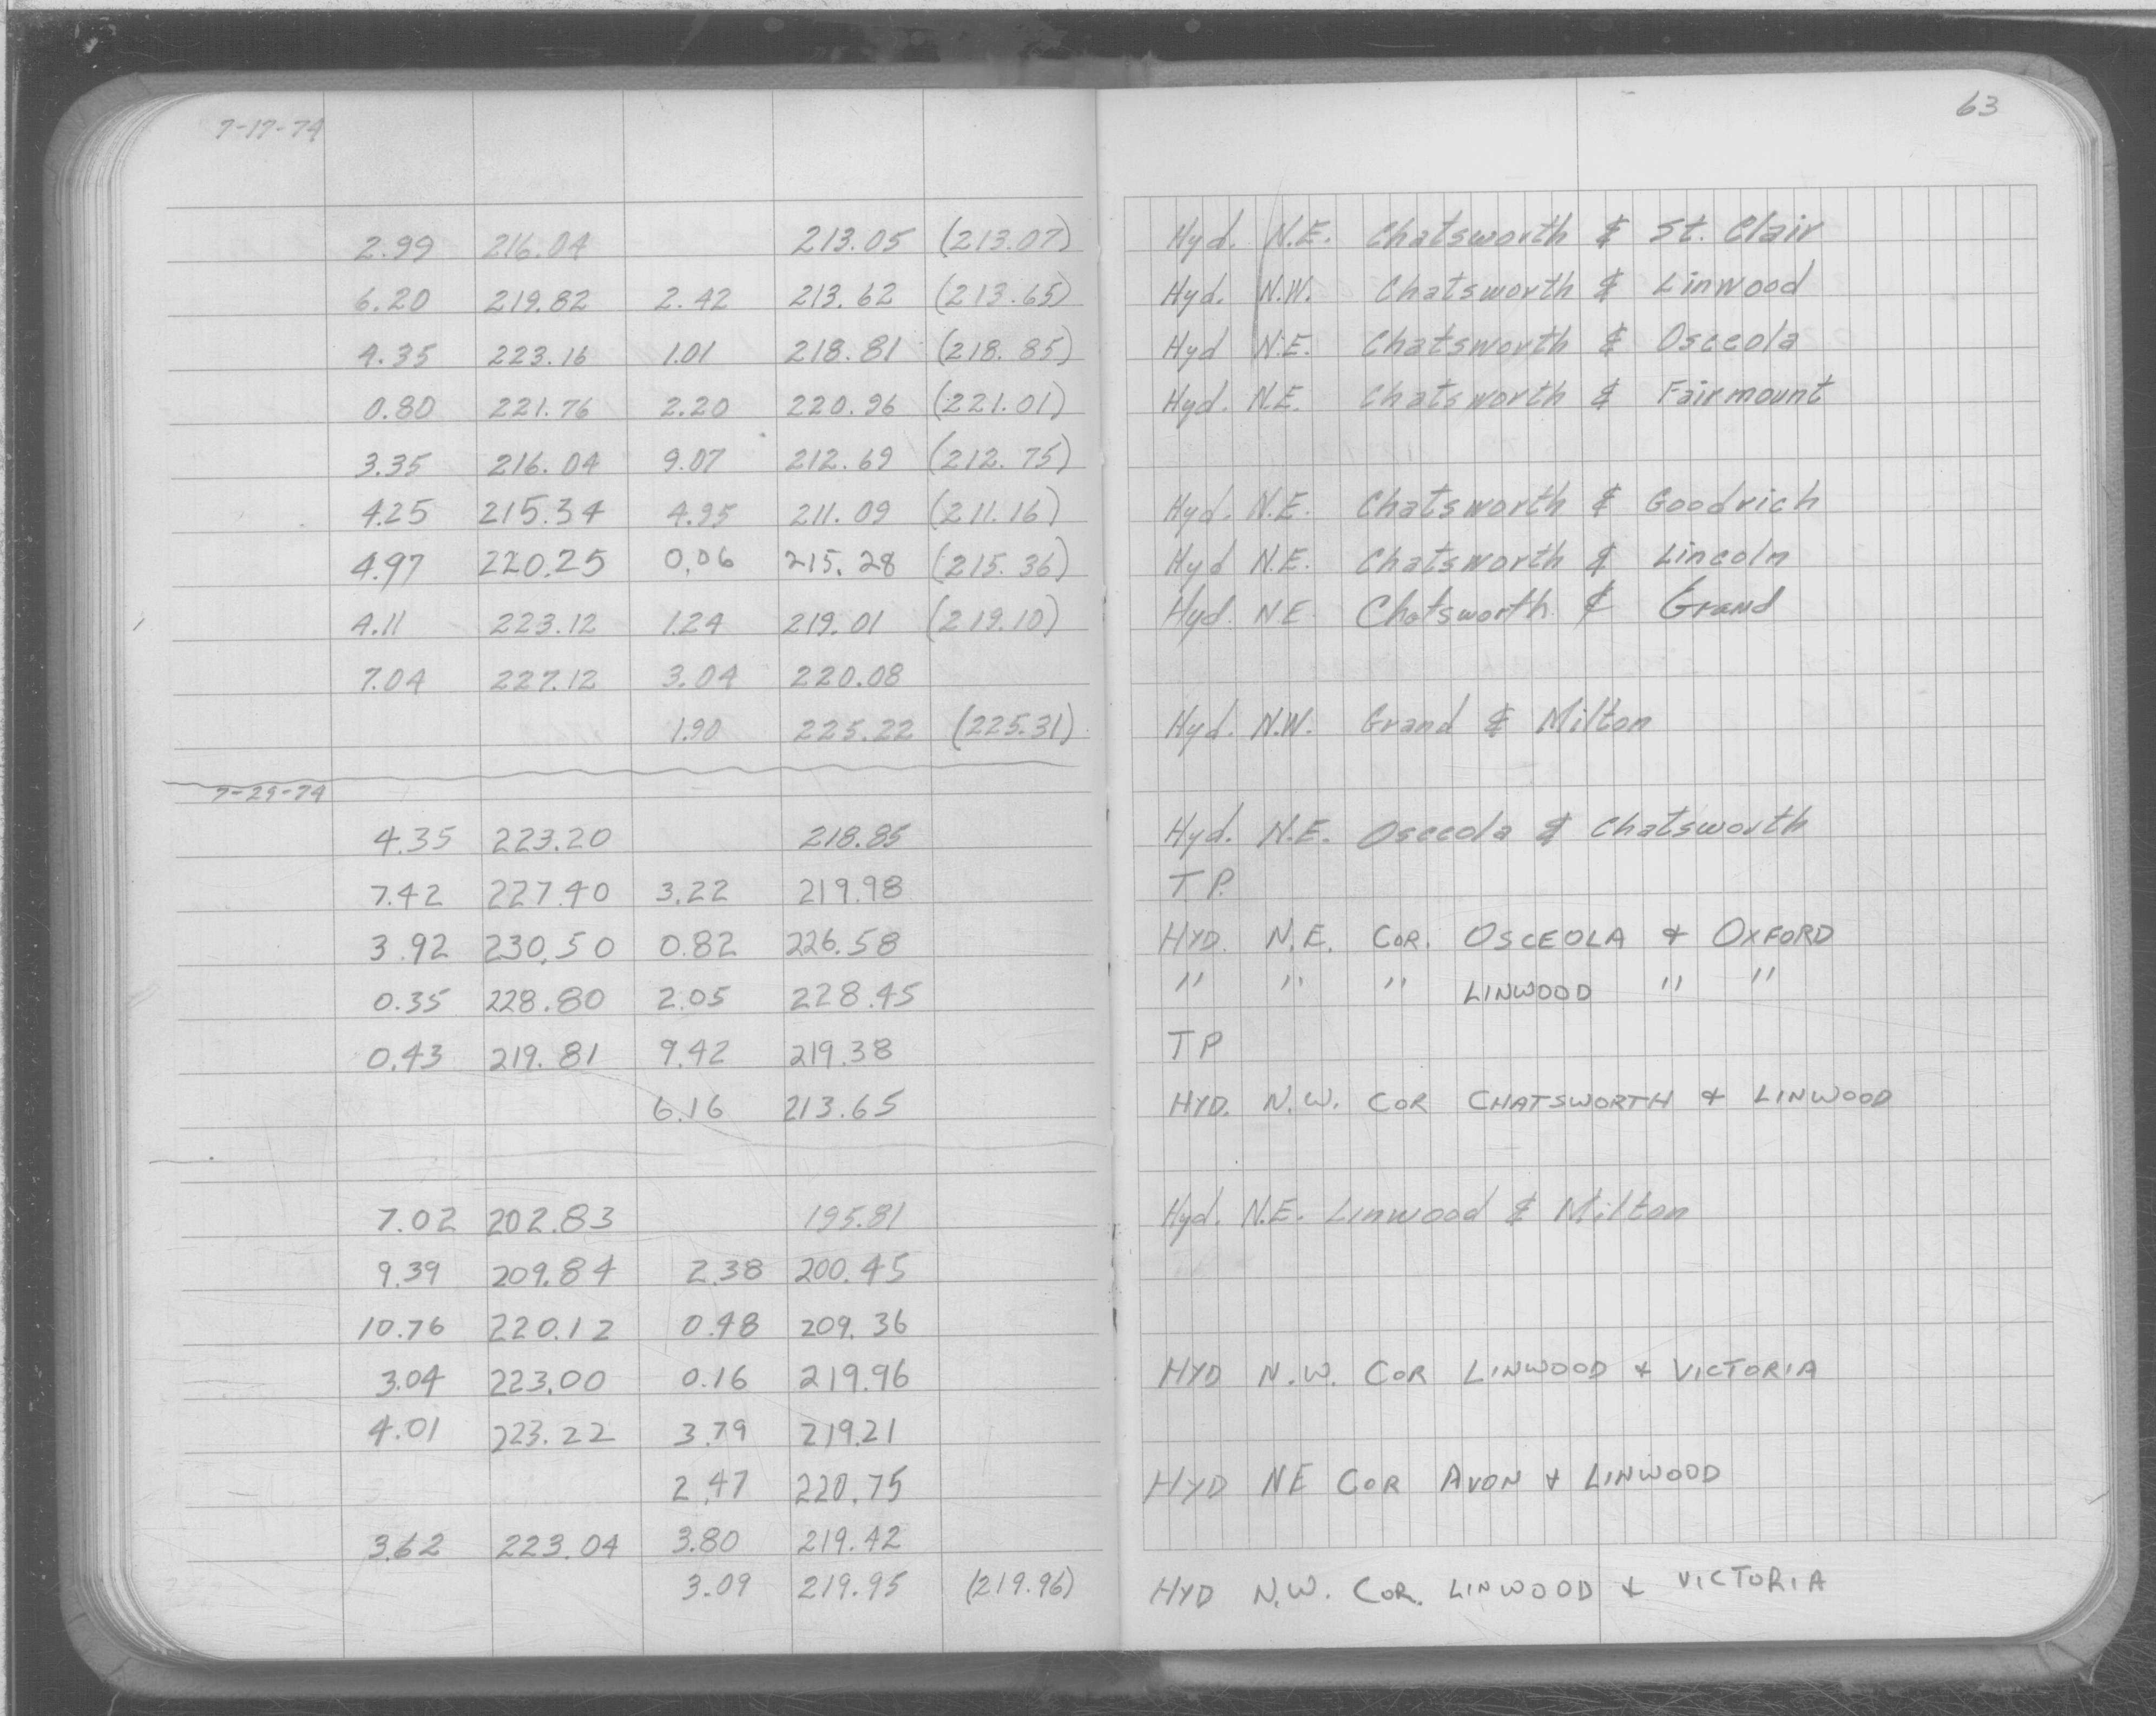 7-17-74 63
2.99 216.04 213.05 (213.07) Hyd. N.E. Chatsworth & St. Clair
6.20 219.82 2.42 213.62 (213.65) Hyd. N.W. Chatsworth & Linwood
4.35 223.16 1.01 218.81 (218.85) Hyd N.E. Chatsworth & Osceola
0.80 221.76 2.20 220.96 (221.01) Hyd. N.E. Chatsworth & Fairmount
3.35 216.04 9.07 212.69 (212.75)
4.25 215.34 4.95 211.09 (211.16) Hyd. N.E. Chatsworth & Goodrich
4.97 220.25 0.06 215.28 (215.36) Hyd N.E. Chatsworth & Lincoln
4.11 223.12 1.24 219.01 (219.10) Hyd. NE Chatsworth & Grand
7.04 227.12 3.04 220.08
1.90 225.22 (225.31) Hyd. N.W. Grand & Milton
7-29-74
4.35 223.20 218.85 Hyd. N.E. Osceola & Chatsworth
7.42 227.40 3.22 219.98 T P.
3.92 230.50 0.82 226.58 HYD. N.E. COR. OSCEOLA & OXFORD
0.35 228.80 2.05 228.45 " " " LINWOOD " "
0.43 219.81 9.42 219.38 T P
6.16 213.65 HYD. N.W. COR CHATSWORTH & LINWOOD
7.02 202.83 195.81 Hyd. N.E. Linwood & Milton
9.39 209.84 2.38 200.45
10.76 220.12 0.48 209.36
3.04 223.00 0.16 219.96 HYD N.W. COR LINWOOD & VICTORIA
4.01 223.22 3.79 219.21
2.47 220.75 HYD NE COR AVON & LINWOOD
3.62 223.04 3.80 219.42
3.09 219.95 (219.96) HYD N.W. COR. LINWOOD & VICTORIA